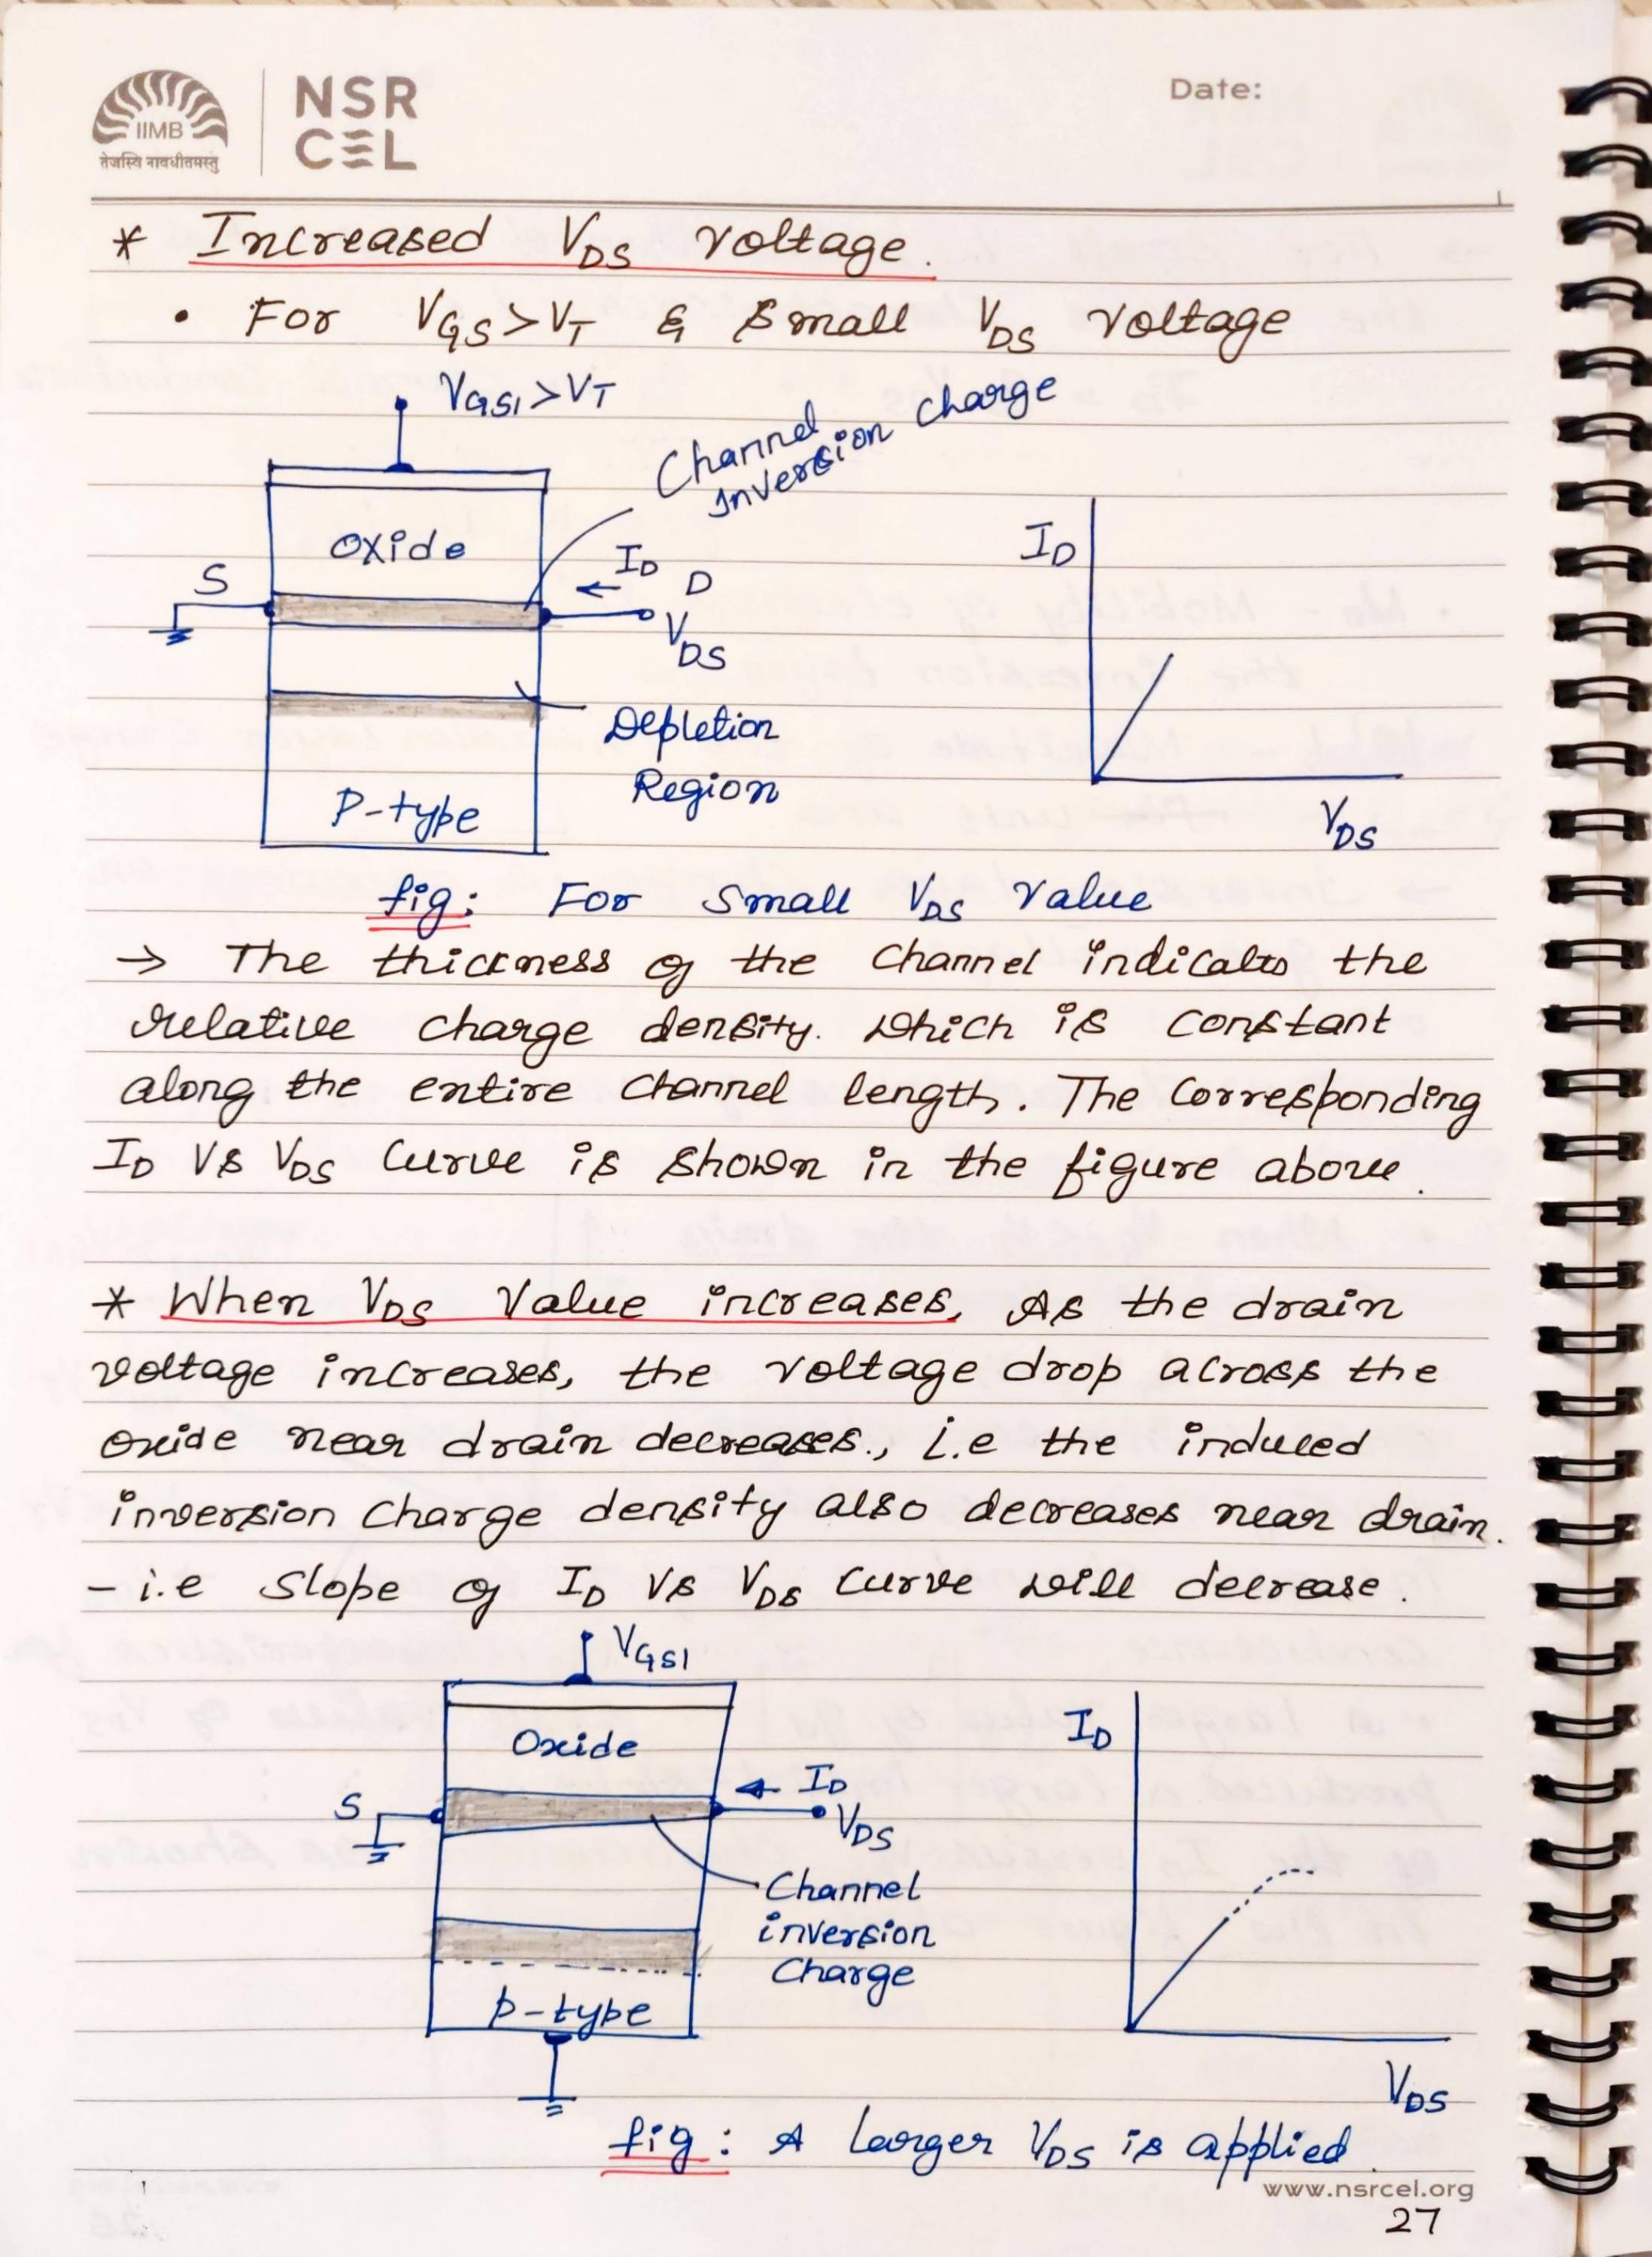 IIMB
तेजस्वि नावधीतमस्तु
NSR
CEL
Date:
* Increased VDS Voltage.
• For VGS>VT & Small VDS Voltage
VGS1>VT
Channel
Inversion Charge
Oxide
S
ID
D
VDS
Depletion
Region
P-type
ID
VDS
fig: For Small VDS Value
→ The thickness of the Channel indicates the
relative charge density. Which is constant
along the entire Channel length. The Corresponding
ID VS VDS Curve is shown in the figure above.
* When VDS Value increases, As the drain
voltage increases, the voltage drop across the
oxide near drain decreases., i.e the induced
inversion Charge density also decreases near drain.
- i.e Slope of ID VS VDS Curve will decrease.
VGS1
Oxide
S
ID
VDS
Channel
inversion
Charge
p-type
ID
VDS
fig: A larger VDS is applied.
www.nsrcel.org
27